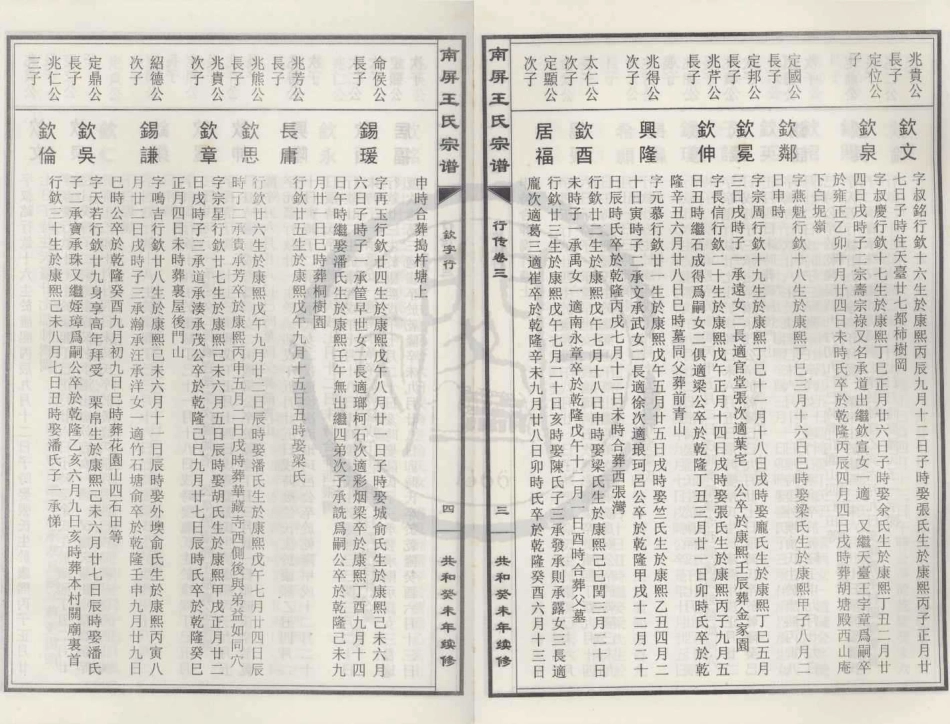 兆貴公
長子
欽文
字叔銘行欽十六生於康熙丙辰九月十二日子時娶俞氏生於康熙丙子正月廿
七日子時住天臺廿七都柿樹岡
定位公
子
欽泉
字叔慶行欽十七生於康熙丁巳正月廿六日子時娶余氏生於康熙丁丑二月廿
四日戌時子二宗壽宗祿又名承道出繼欽宣女一適 又繼天臺王宇章爲嗣卒
於雍正乙卯十月廿四日未時氏卒於乾隆丙辰四月四日戌時葬胡塘殿西山庵
下白坭嶺
定國公
欽鄰
字燕魁行欽十八生於康熙丁巳三月十六日巳時娶梁氏生於康熙甲子八月二
日申時
定邦公
長子
欽冕
字宗周行欽十九生於康熙丁巳十一月十八日戌時娶龐氏生於康熙丁巳五月
三日戌時子一承遠女二長適官堂張次適葉宅 公卒於康熙壬辰葬金家園
兆芹公
長子
欽伸
字長信行欽二十生於康熙戊午正月十四日戌時娶張氏生於康熙戊子九月四
日丑時繼石成得爲嗣女二俱適梁公卒於乾隆丁丑三月廿一日卯時氏卒於乾
隆辛丑六月廿八日巳時墓同父葬前青山
兆得公
次子
興隆
字元慕行欽廿一生於康熙戊午五月廿五日戌時娶竺氏生於康熙乙丑四月二
十日寅時子二承文承武女二長適徐次適琅珂呂公卒於乾隆甲戌十二月二十
日辰時氏卒於乾隆丙戌七月十二日未時合葬西張灣
太仁公
次子
欽酉
行欽廿二生於康熙戊午七月十八日申時娶梁氏生於康熙己巳閏三月二十日
未時子一承禹女一適南永章卒於乾隆戊午十二月一日酉時合葬父墓
定顯公
次子
居福
行欽廿三生於康熙戊午七月二十日亥時娶陳氏子三承發承則承露女三長適
龐次適葛三適崔卒於乾隆辛未九月廿八日卯時氏卒於乾隆癸酉六月十三日
南屏王氏宗谱
行传卷三
三
共和癸未年续修
南屏王氏宗谱
欽字行
四
共和癸未年续修
申時合葬搗杵塘上
命侯公
長子
錫瑗
字再玉行欽廿四生於康熙戊午八月廿一日子時娶城俞氏生於康熙己未六月
六日子時子一承篚早世女二長適瑯柯石次適彩烟梁卒於康熙丁酉九月十四
日午時繼娶潘氏生於康熙壬午無出繼四弟次子承詵爲嗣公卒於乾隆己未九
月廿一日巳時葬桐樹園
兆芳公
長子
長庸
行欽廿五生於康熙戊午九月十五日丑時娶梁氏
兆熊公
長子
欽思
行欽廿六生於康熙戊午九月廿二日辰時娶潘氏生於康熙戊午七月廿四日辰
時子二承貴承芳卒於康熙丙申五月二日戌時葬華藏寺西側後與弟益如同穴
兆貴公
次子
欽章
字宗星行欽廿七生於康熙己未六月五日辰時娶胡氏生於康熙甲戌正月廿二
日戌時子三承道承湊承茂公卒於乾隆己巳九月廿七日辰時氏卒於乾隆癸巳
正月四日未時葬裏屋後門山
紹德公
次子
錫謙
字鳴吉行欽廿八生於康熙己未六月十一日辰時娶外墺俞氏生於康熙丙寅八
月廿二日戌時子三承瀚承汪承洋女一適竹石塘俞卒於乾隆壬申九月廿九日
巳時公卒於乾隆癸酉九月初九日巳時葬花園山四石田等
定鼎公
長子
欽吳
字天若行欽廿九身享高年拜受 粟帛生於康熙己未六月廿七日辰時娶潘氏
子二承寶承珠又繼姪璋爲嗣公卒於乾隆乙亥六月九日亥時葬本村關廟裏首
兆仁公
三子
欽倫
行欽三十生於康熙己未八月七日丑時娶潘氏子一承悌